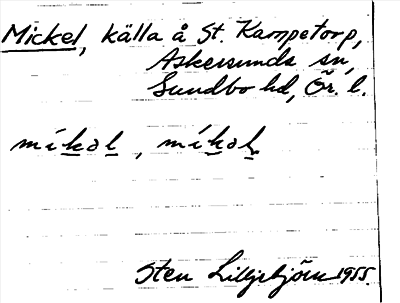 Mickel, källa å St. Kampetorp,
Askersunds sn,
Sundbo hd, Ör. l.
míkəl, míkəl
Sten Lilljebjörn 1955.